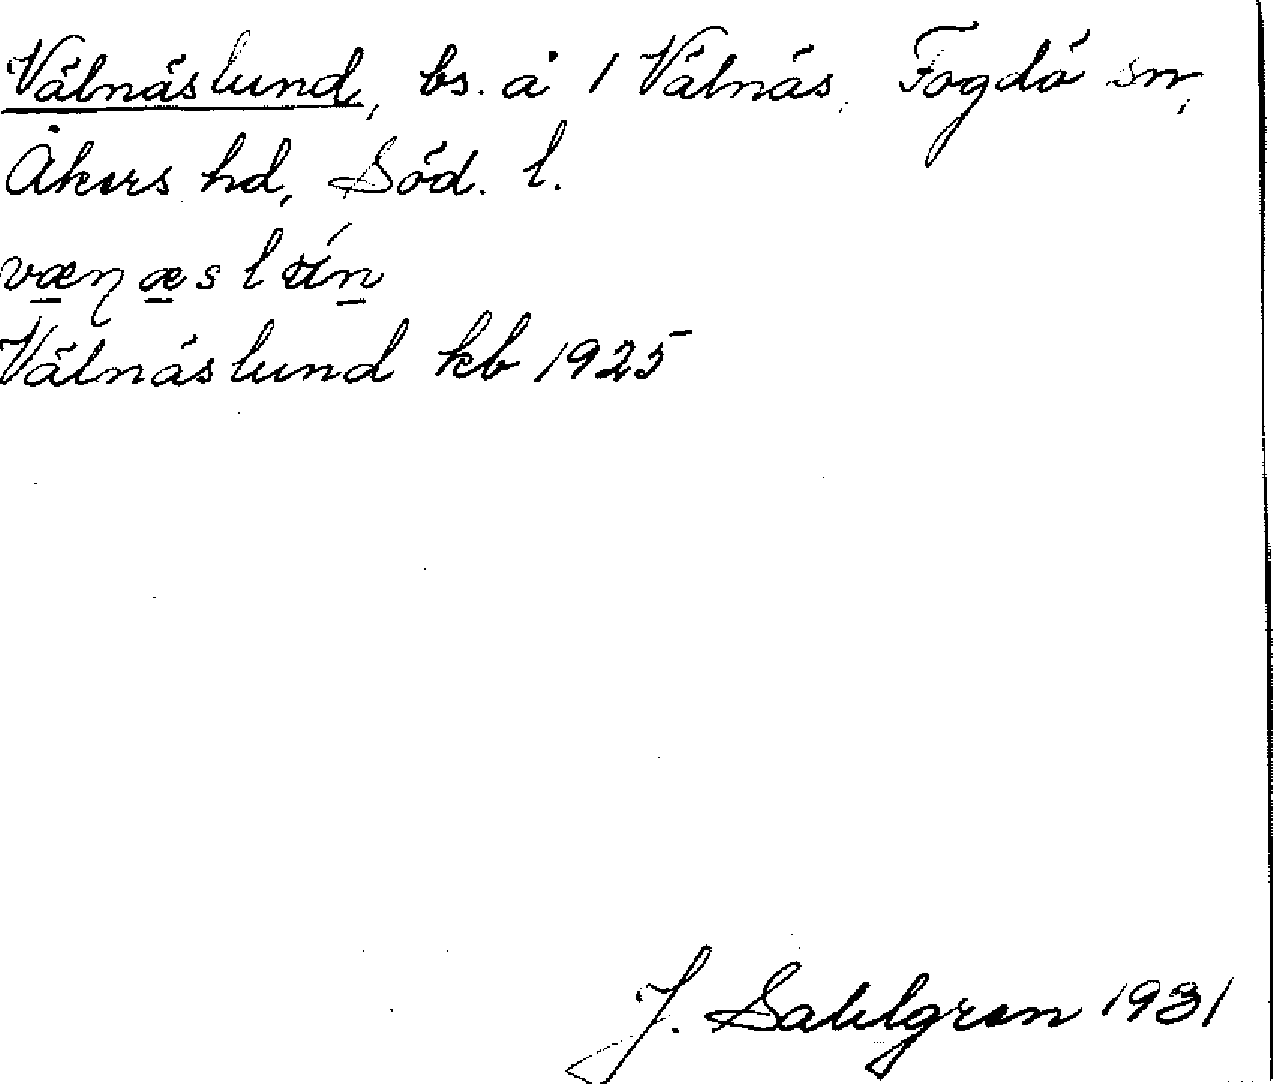 Välnäslund, bs. å 1 Välnäs, Fogdö sn,
Åkers hd, Söd. l.
Välnäslund kb 1925
J. Sahlgren 1931